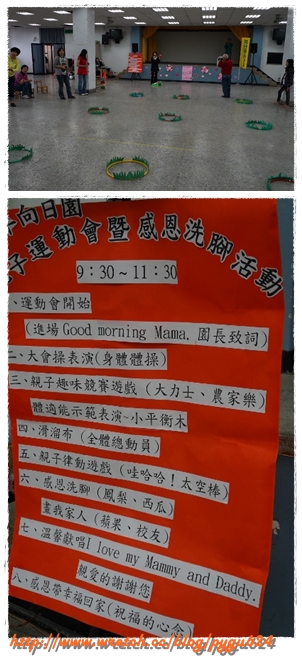 向日園
子運動會暨感恩洗腳活動
9：30～11：30
、運動會開始
（進場Good morning Mama, 園長致詞）
二、大會操表演（身體體操）
三、親子趣味競賽遊戲（大力士、農家樂）
體適能示範表演~小平衡木
四、滑溜布（全體總動員）
五、親子律動遊戲（哇哈哈！太空棒）
六、感恩洗腳（鳳梨、西瓜）
畫我家人（蘋果、校友）
七、溫馨獻唱I love my Mammy and Daddy.
親愛的謝謝您
八、感恩帶幸福回家（祝福的心念）
http://www.wretch.cc/blog/pygu624